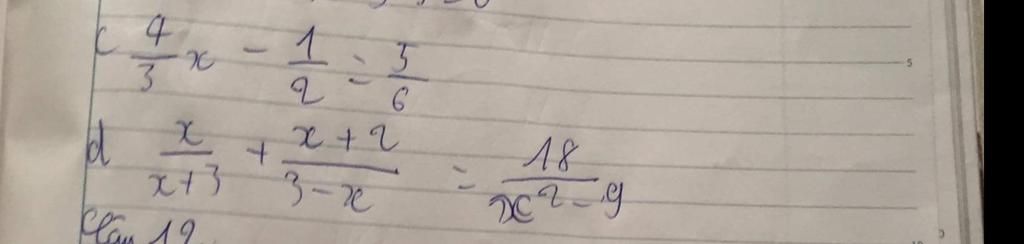 c 4/3 x - 1/2 = 5/6
d x/(x+3) + (x+2)/(3-x) = 18/(x²-9)
Câu 12
5